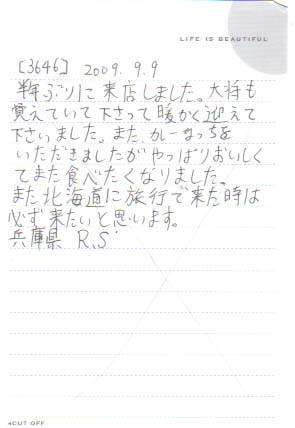 LIFE IS BEAUTIFUL
[3646] 2009.9.9
半年ぶりに来店しました。大将も
覚えていて下さって暖かく迎えて
下さいました。また、カレーまっちを
いただきましたがやっぱりおいしく
てまた食べたくなりました。
また北海道に旅行で来た時は
必ず来たいと思います。
兵庫県 R.S
CUT OFF